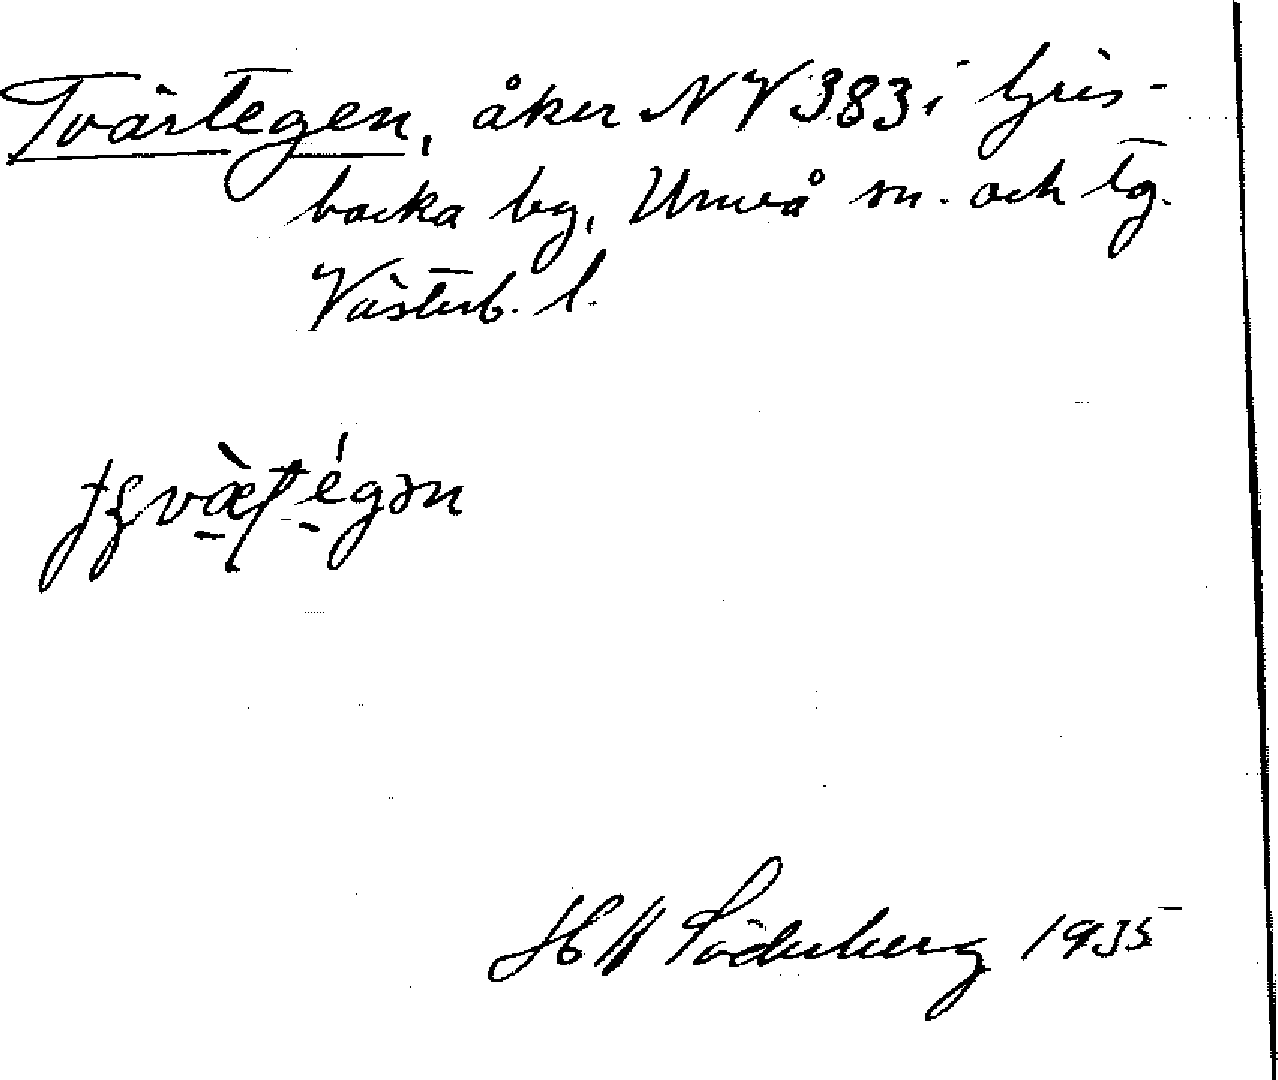 Tvärtegen, åker NV 383 i Gris-
backa by, Umeå sn. och tg.
Västerb. l.
Söderberg 1935